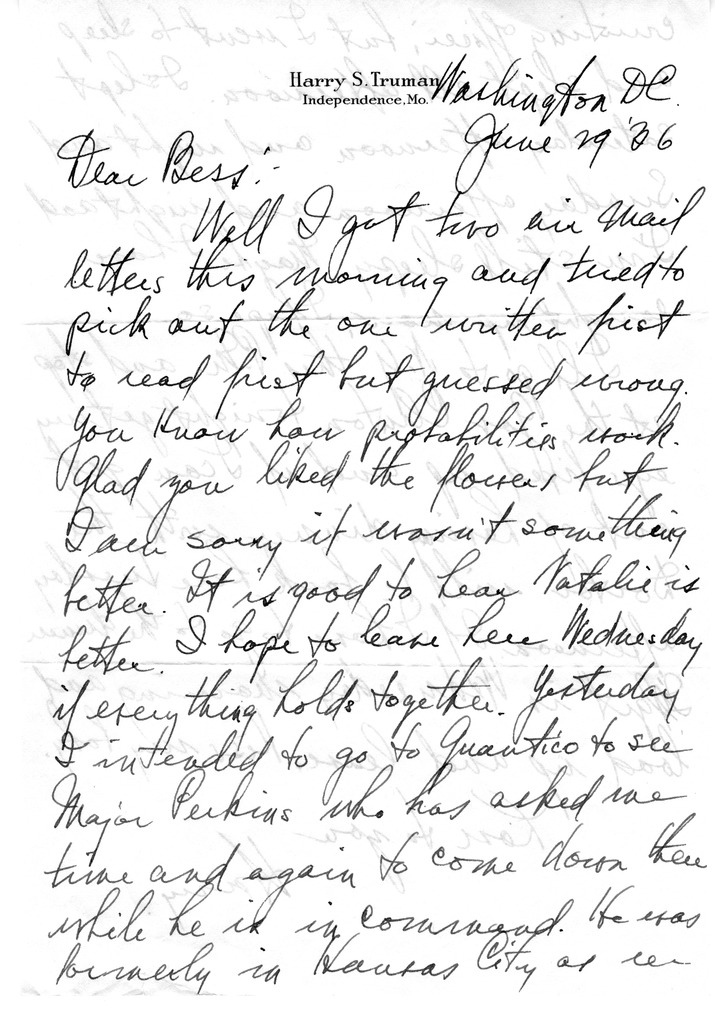 Harry S. Truman
Independence, Mo.
Washington DC.
June 29 '36
Dear Bess:-
Well I got two air mail
letters this morning and tried to
pick out the one written first
to read first but guessed wrong.
You know how probabilities work.
Glad you liked the flowers but
I am sorry it wasn't something
better. It is good to hear Natalie is
better. I hope to leave here Wednesday
if everything holds together. Yesterday
I intended to go to Quantico to see
Major Perkins who has asked me
time and again to come down there
while he is in command. He was
formerly in Kansas City as re-